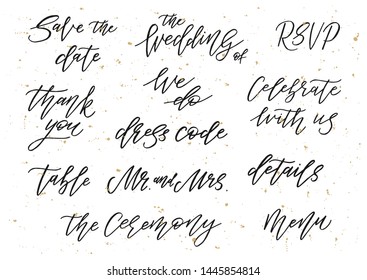 Save the
date
the
wedding
of
RSVP
thank
you
we
do
Celebrate
with us
dress code
table
Mr. and Mrs.
details
the Ceremony
Menu
shutterstock.com · 1445854814